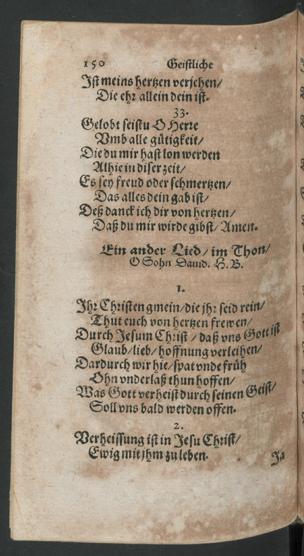 150 Geistliche
Ist meins hertzen verjehen/
Die ehr allein dein ist.
33.
Gelobt seistu O Herre
Vmb alle gütigkeit/
Die du mir hast lon werden
Alhie in diser zeit/
Es sey freud oder schmertzen/
Das alles dein gab ist/
Deß danck ich dir von hertzen/
Daß du mir wirde gibst/ Amen.
Ein ander Lied/ im Thon/
O Sohn David. H. B.
1.
Ihr Christen gmein/ die jhr seid rein/
Thut euch von hertzen frewen/
Durch Jesum Christ/ daß vns Gott ist
Glaub/ lieb/ hoffnung verleihen/
Dardurch wir hie/ spat vnde früh
Ohn vnderlaß thun hoffen/
Was Gott verheist durch seinen Geist/
Soll vns bald werden offen.
2.
Verheissung ist in Jesu Christ/
Ewig mit jhm zu leben.